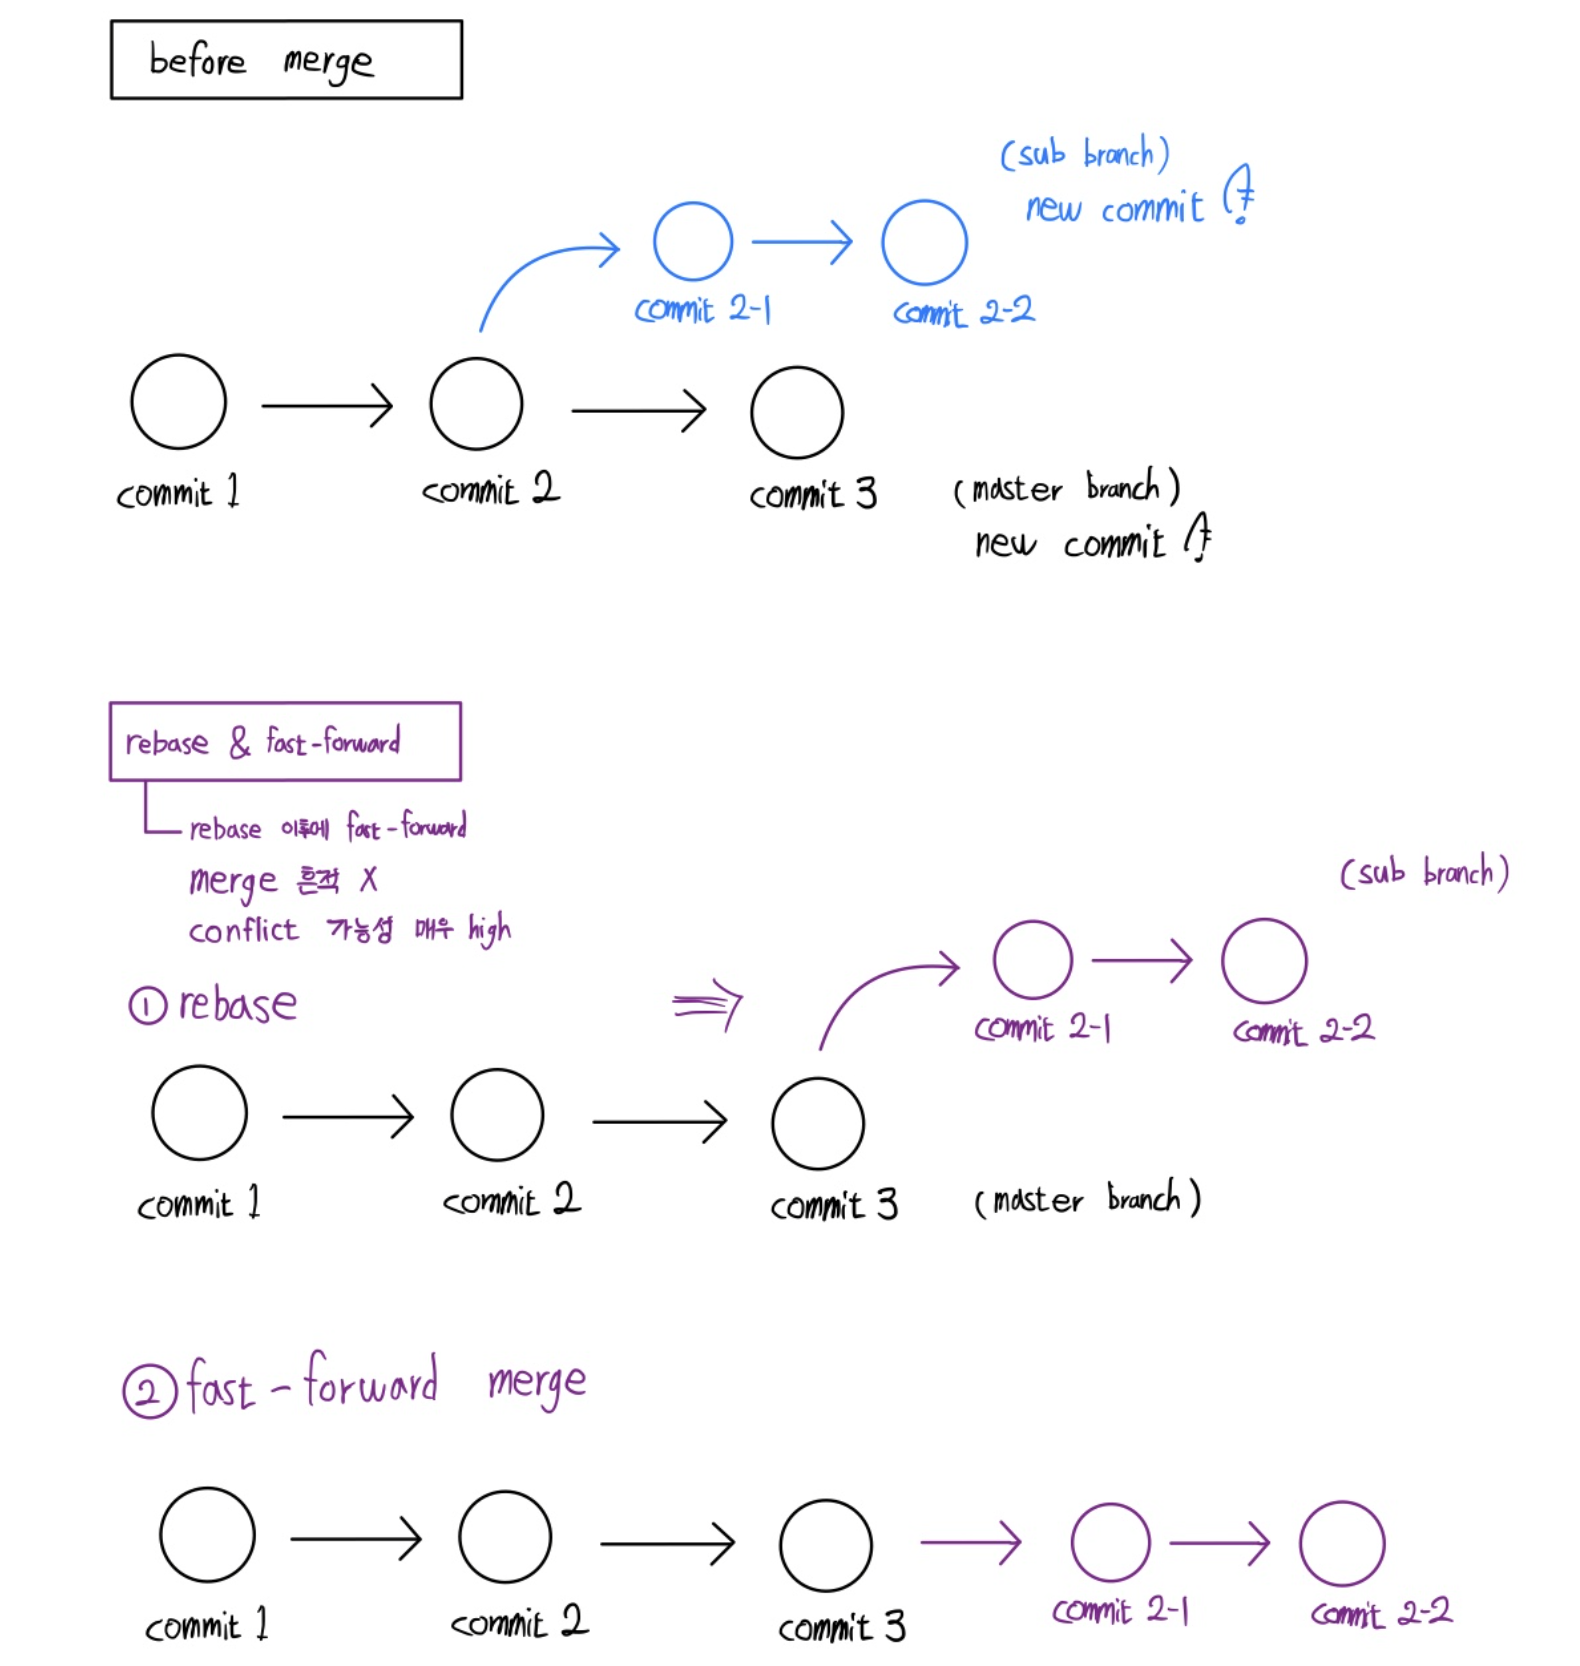 before merge
(sub branch)
new commit 有
commit 2-1
commit 2-2
commit 1
commit 2
commit 3
(master branch)
new commit 有
rebase & fast-forward
rebase 이후에 fast-forward
merge 흔적 X
conflict 가능성 매우 high
① rebase
⇒
(sub branch)
commit 2-1
commit 2-2
commit 1
commit 2
commit 3
(master branch)
② fast-forward merge
commit 1
commit 2
commit 3
commit 2-1
commit 2-2